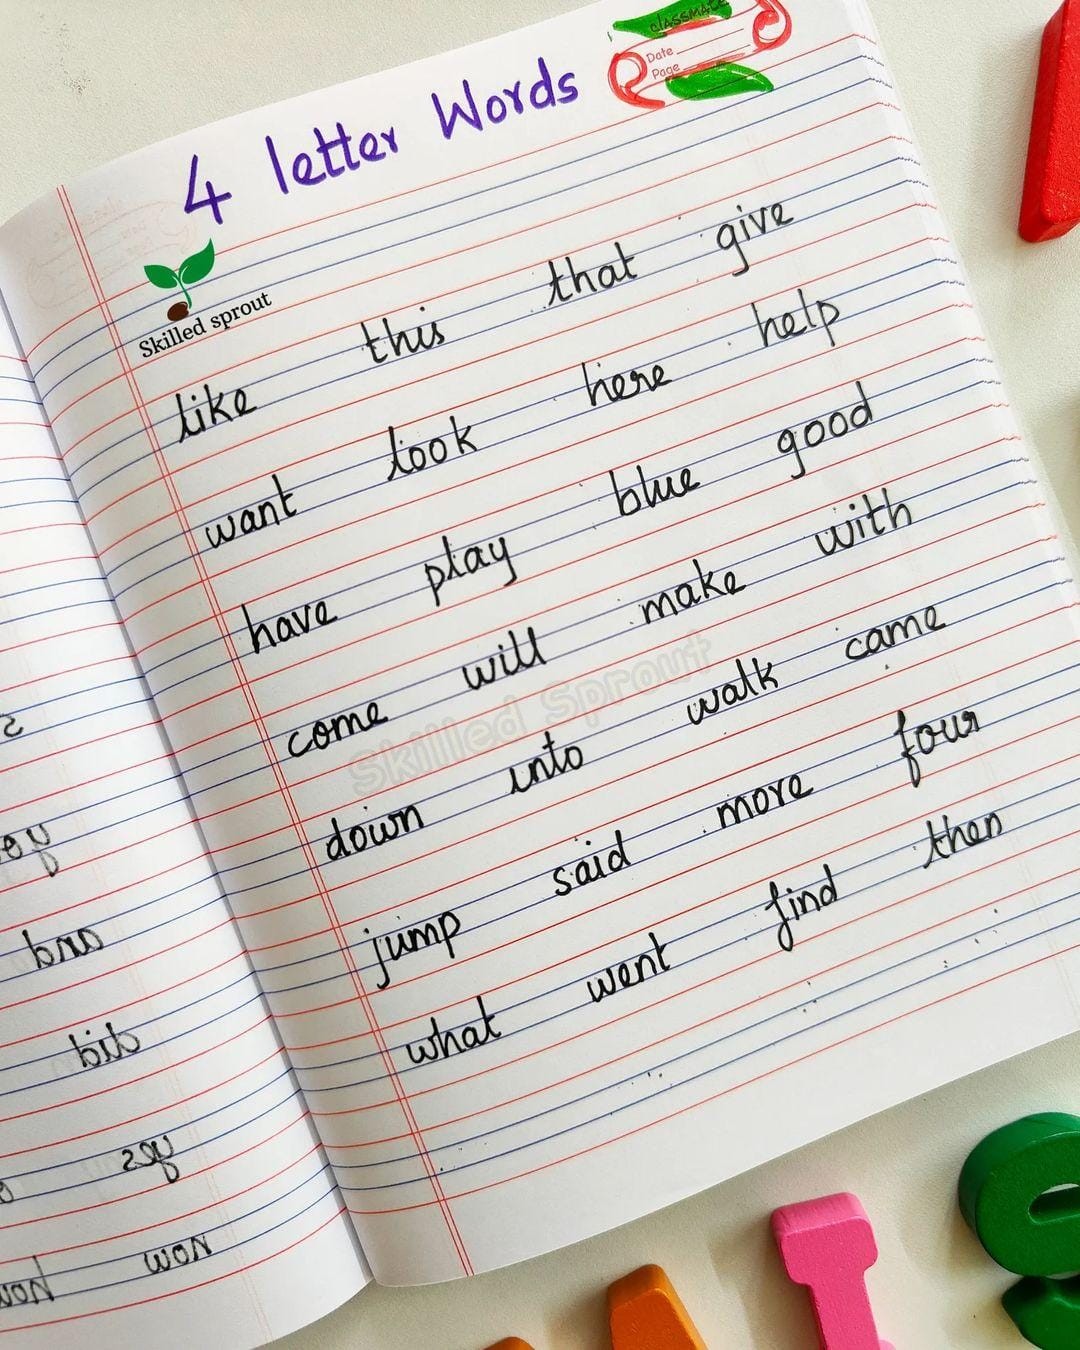 classmate
Date
Page
4 letter Words
Skilled sprout
like this that give
want look here help
have play blue good
come will make with
Skilled Sprout
down into walk came
jump said more four
what went find then